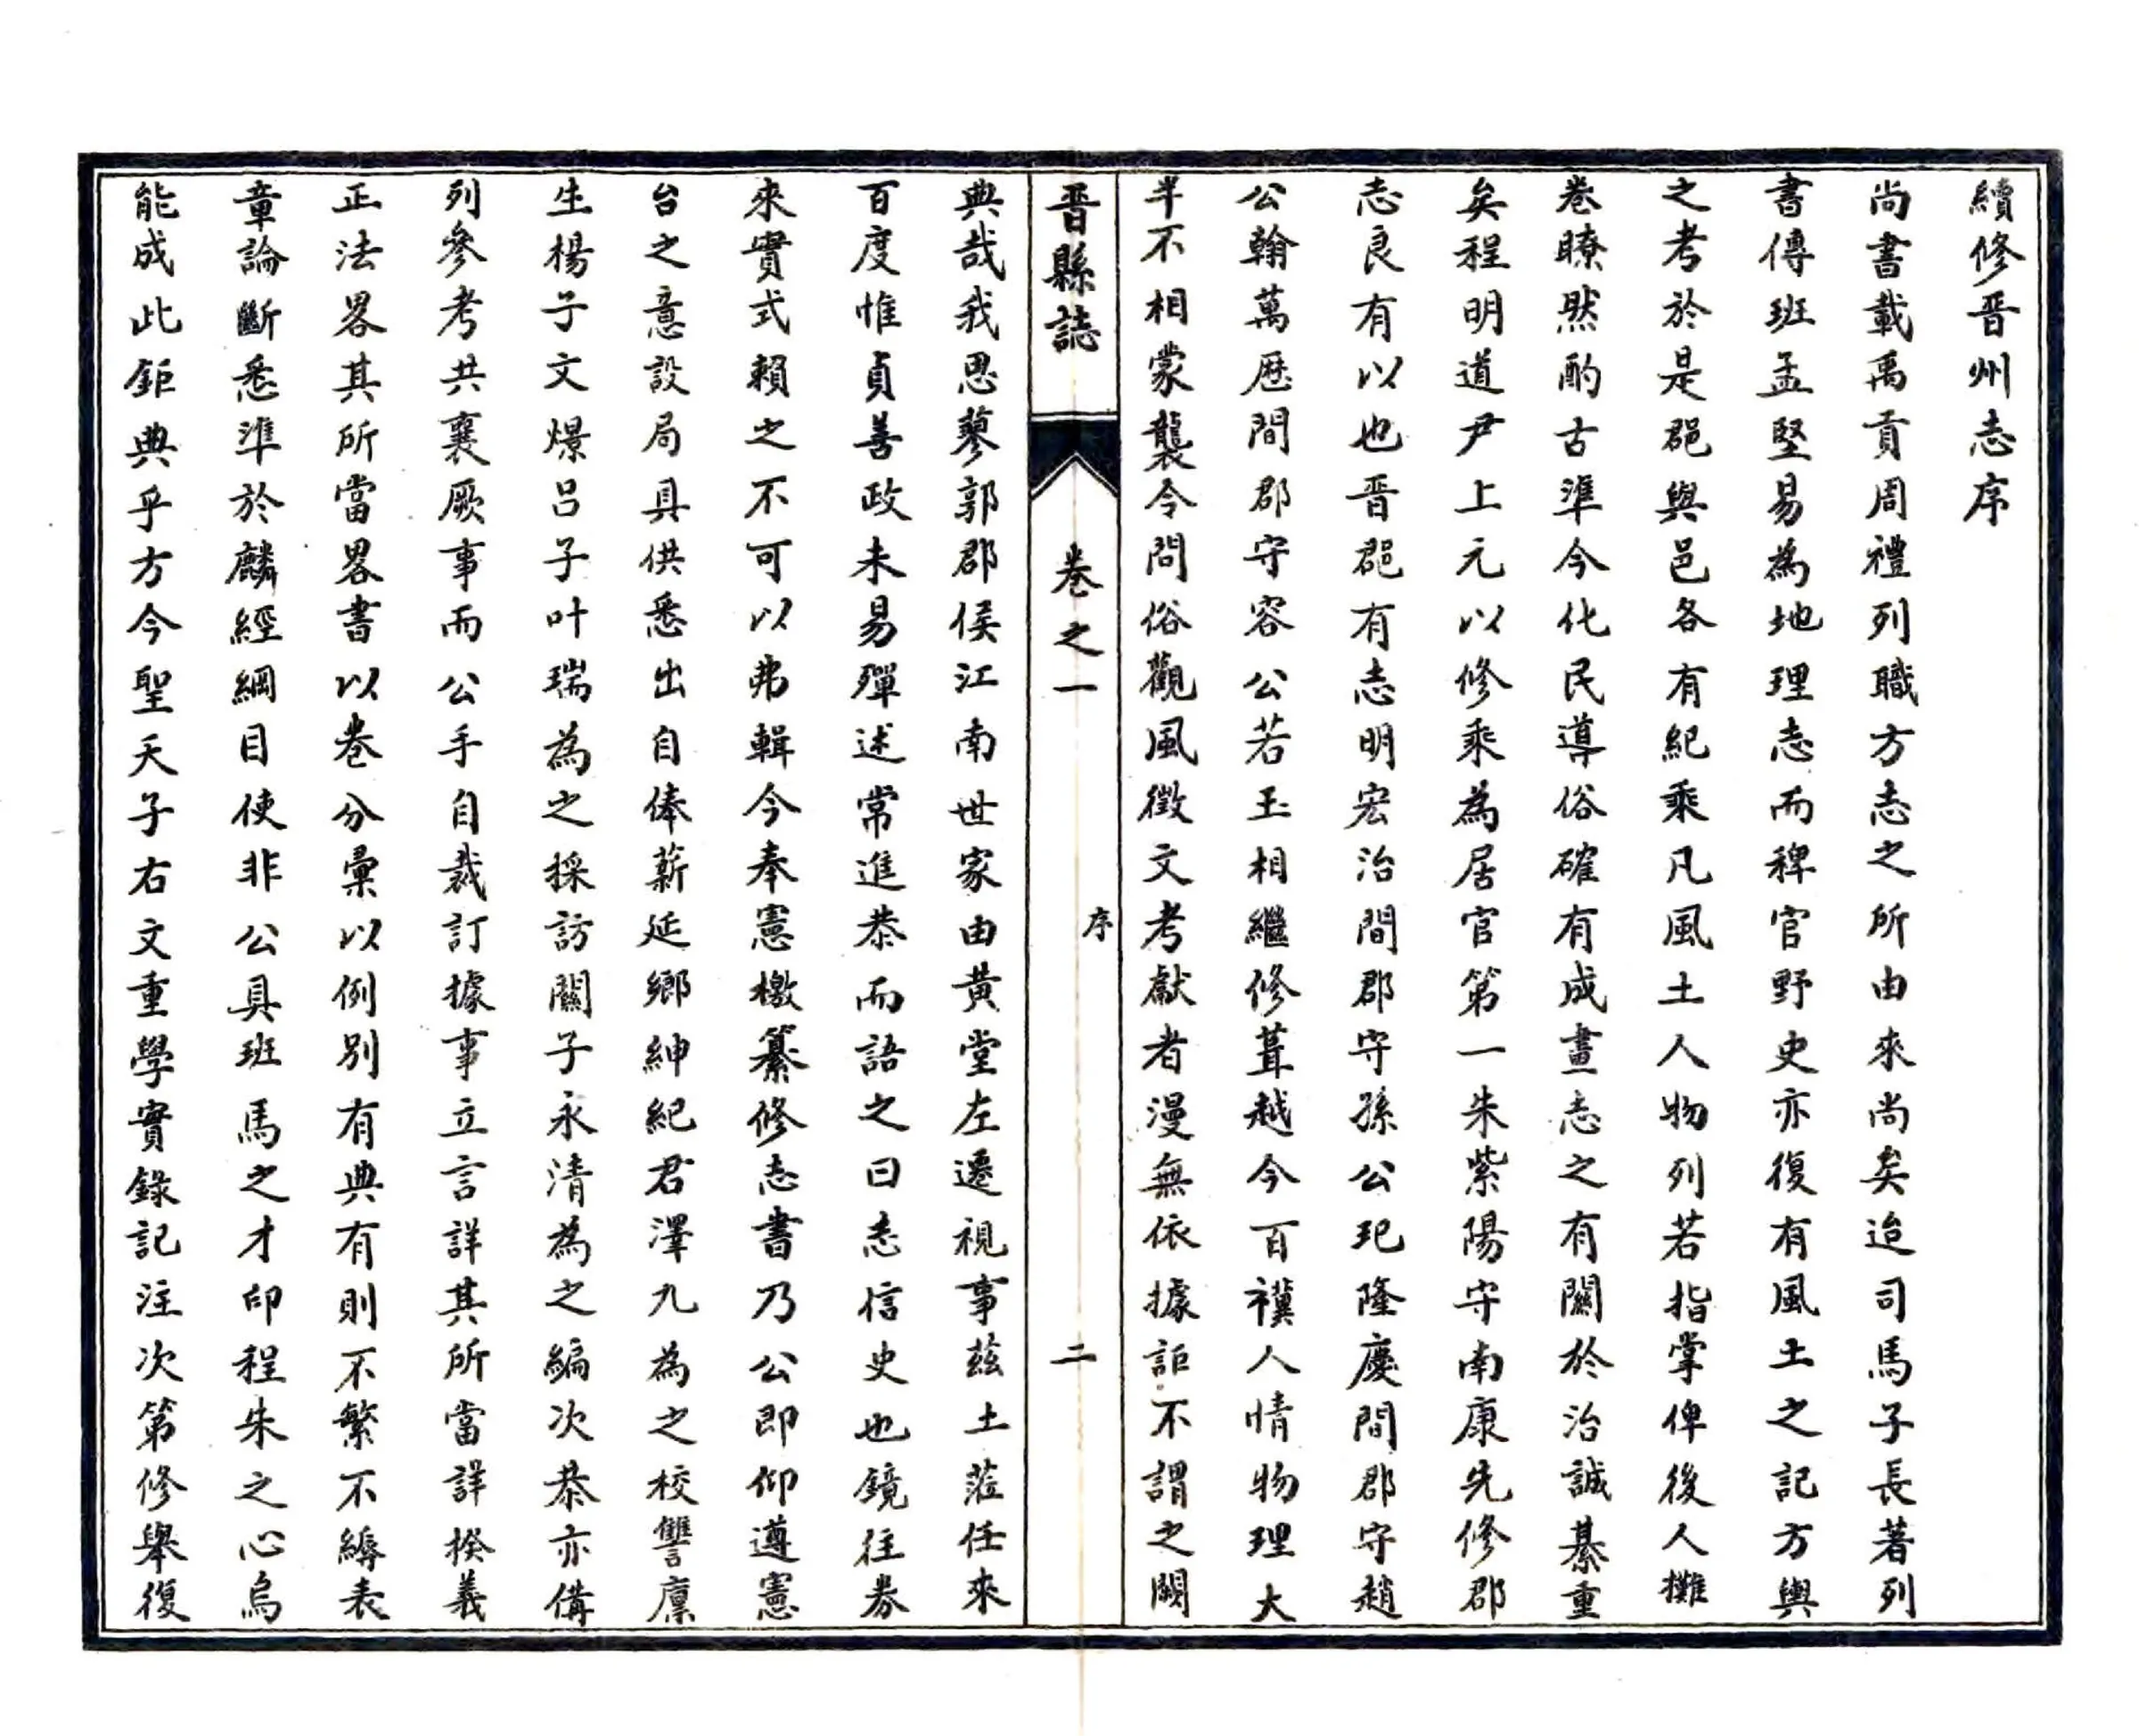 續修晋州志序
尚書載禹貢周禮列職方志之所由來尚矣迨司馬子長著列
書傳班孟堅易為地理志而稗官野史亦復有風土之記方輿
之考於是郡與邑各有紀乘凡風土人物列若指掌俾後人攤
卷瞭然酌古準今化民導俗確有成畫志之有關於治誠綦重
矣程明道尹上元以修乘為居官第一朱紫陽守南康先修郡
志良有以也晋郡有志明宏治間郡守孫公玘隆慶間郡守趙
公翰萬厯間郡守容公若玉相繼修葺越今百禩人情物理大
半不相蒙襲今問俗觀風徵文考獻者漫無依據詎不謂之闕
晋縣誌
卷之一
序
二
典哉我思蓼郭郡侯江南世家由黃堂左遷視事茲土蒞任來
百度惟貞善政未易殫述常進恭而語之曰志信史也鏡往券
來實式賴之不可以弗輯今奉憲檄纂修志書乃公即仰遵憲
台之意設局具供悉出自俸薪延鄉紳紀君澤九為之校讐廩
生楊子文燝呂子叶瑞為之採訪關子永清為之編次恭亦備
列參考共襄厥事而公手自裁訂據事立言詳其所當詳揆義
正法畧其所當畧書以卷分彙以例別有典有則不繁不縟表
章論斷悉準於麟經綱目使非公具班馬之才印程朱之心烏
能成此鉅典乎方今聖天子右文重學實錄記注次第修舉復